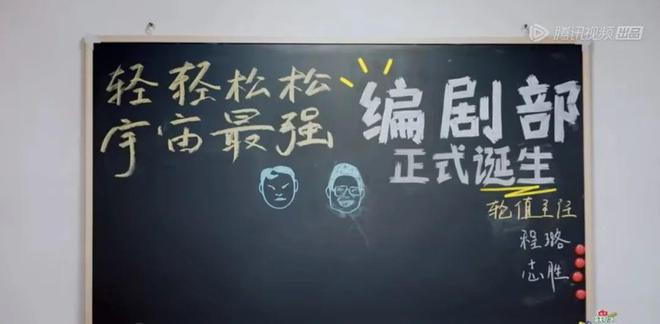 腾讯视频 出品
轻轻松松
宇宙最强
编剧部
正式诞生
轮值主任
程璐
志胜